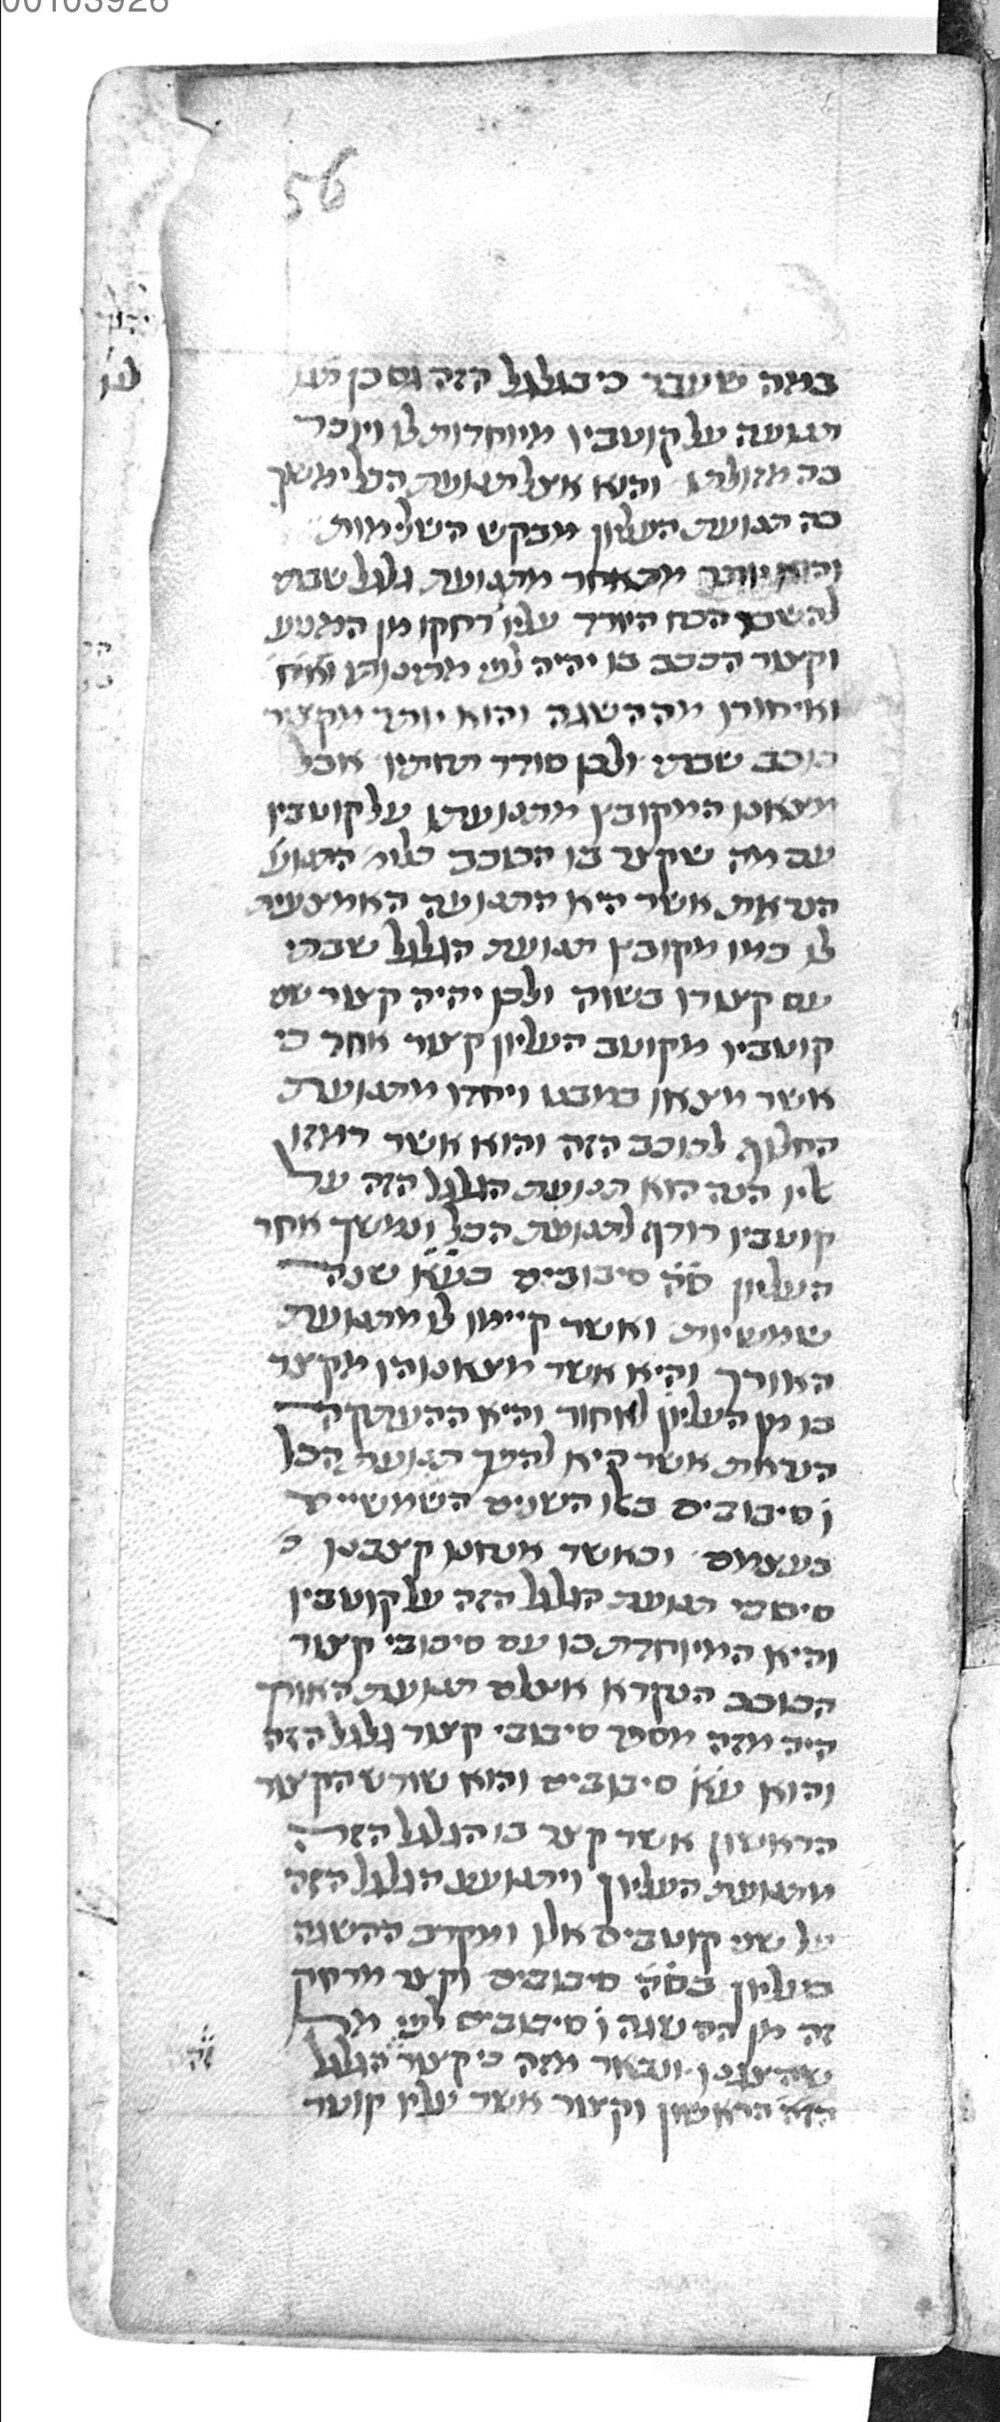 00103926
56
במה שעבר כי בגלגל הזה גם כן יש
תנועה על קוטביו מיוחדות לו ויוכר
בה מזולתו והוא אצל תנועת הכל ימשך
בה תנועת העליון מבקש השלימות
והוא יותר מתאחר מתנועת גלגל שבתי
להשבר הכח היורד עליו רחקו מן המניע
וקצור הככב בו יהיה לפי
ואיחורו מההשגה והוא יותר מקצור
כוכב שבתי ולכן סודר תחתיו אבל
מצאנו המקובץ מתנועתו על קוטביו
עם מה שקצר בו הכוכב כלומ׳ התנוע׳
הנראת אשר היא התנועה האמצעית
לו כמו מקובץ תנועת הגלגל שבתי
עם קצורו בשוה ולכן יהיה קצור שני
קוטביו מקוטב העליון קצור אחר כי
אשר מצאנו במבט ויחדו מתנועת
החלוף לכוכב הזה והוא אשר רמזנו
אליו הנה הוא תנועת הגלגל הזה על
קוטביו רודף לתנועת הכל ונמשך אחר
העליון ס״ה סיבובים בע״א שנה
שמשיות ואשר קיימו לו מתנועת
האורך והיא אשר מצאנוהו מקצר
בו מן העליון לאחור והיא ההעתקה
הנראת אשר היא להפך תנועת הכל
ו׳ סיבובים באלו השנים השמשיים
בעצמם וכאשר אנחנו קצבנו
סיבובי תנועת הגלגל הזה על קוטביו
והיא המיוחדת בו עם סיבובי קצור
הכוכב הנקרא אצלם תנועת האורך
היה מזה מספר סיבובי קצור גלגל הזה
והוא ע״א סיבובים והוא שורש הקצור
הראשון אשר קצר בו הגלגל הזה
מתנועת העליון ויתנועע הגלגל הזה
על שני קוטבים אלו ומקרב ההשגה
בעליון בס״ה סיבובים וקצר מרחק
זה מן ההשגה ו׳ סיבובים לפי מה
שהצגנו ונבאר מזה כי קצור הגלגל
הזה הראשון וקצור אשר עליו קוטר